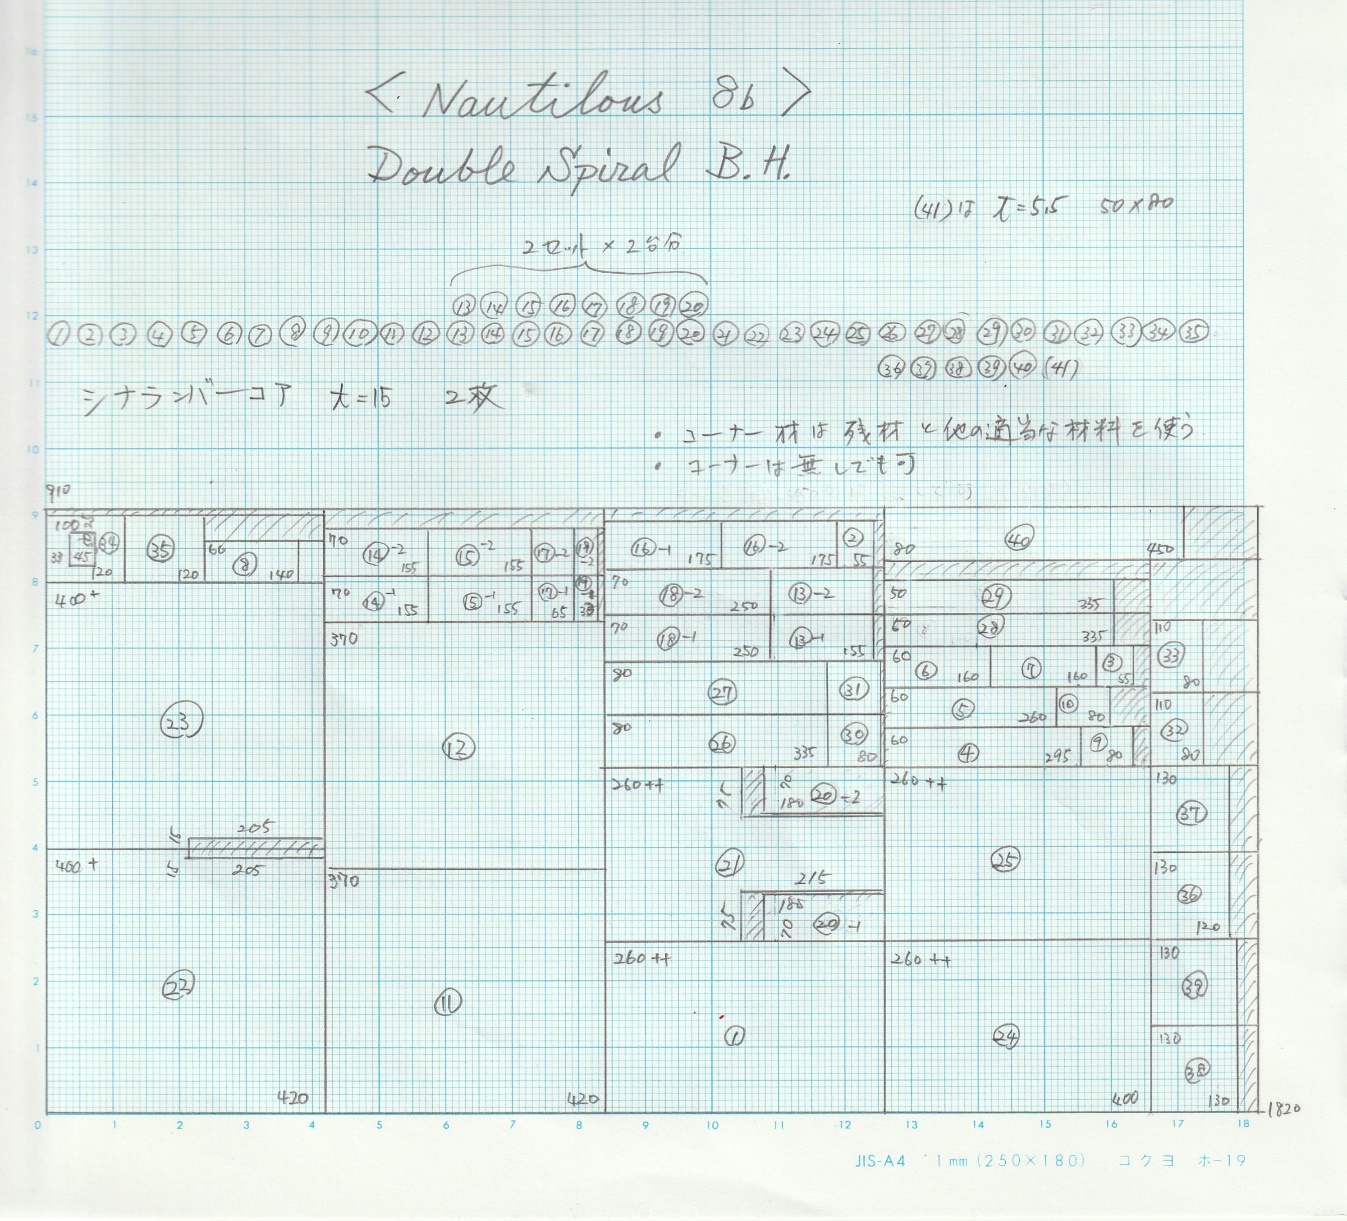 < Nautilous 8b >
Double Spiral B.H.
(41)は t=5.5 50×80
2セット × 2台分
⑬ ⑭ ⑮ ⑯ ⑰ ⑱ ⑲ ⑳
① ② ③ ④ ⑤ ⑥ ⑦ ⑧ ⑨ ⑩ ⑪ ⑫ ⑬ ⑭ ⑮ ⑯ ⑰ ⑱ ⑲ ⑳ ㉑ ㉒ ㉓ ㉔ ㉕ ㉖ ㉗ ㉘ ㉙ ㉚ ㉛ ㉜ ㉝ ㉞ ㉟
㊱ ㊲ ㊳ ㊴ ㊵ (41)
シナランバーコア t=15 2枚
・ コーナー材は残材と他の適当な材料を使う
・ コーナーは無しでも可
910
100
33 45 ㉞ 120
㉟ 120
60 ⑧ 140
400+
㉓
205
400+
205
㉒
420
70 ⑭-2 155 ⑮-2 155 ⑰-2
70 ⑭-1 155 ⑮-1 155 ⑰-1 65
370
⑫
370
⑪
420
⑯-1 175 ⑯-2 175 ② 55
70 ⑱-2 250 ⑬-2
70 ⑱-1 250 ⑬-1 155
80 ㉗ ㉛
80 ㉖ 335 ㉚ 80
260++
70 180 ⑳-2
㉑
215
180 70 ⑳-1
260++
①
80 ㊵ 450
50 ㉙ 335
50 ㉘ 335
60 ⑥ 160 ⑦ 160 ③ 55
60 ⑤ 260 ⑩ 80
60 ④ 295 ⑨ 80
260++
㉕
260++
㉔
400
110 ㉝ 80
110 ㉜ 80
130 ㊲
130 ㊱ 120
130 ㊴
130 ㊳
130
1820
16
15
14
13
12
11
10
9
8
7
6
5
4
3
2
1
0 1 2 3 4 5 6 7 8 9 10 11 12 13 14 15 16 17 18
JIS-A4 1mm (250×180) コクヨ ホ-19